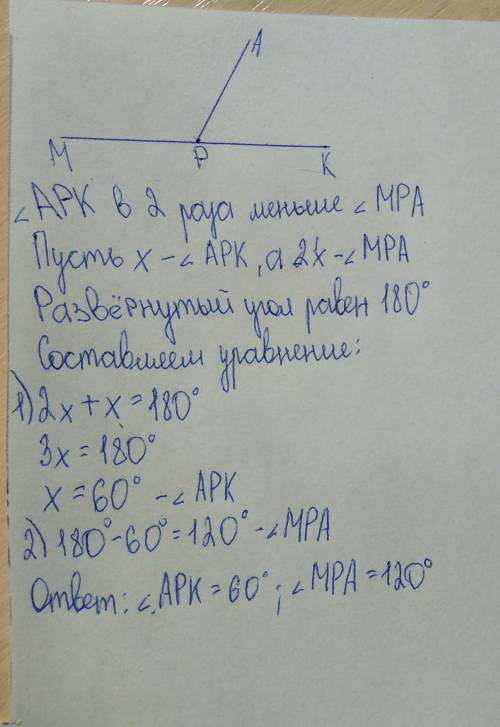 A
M P K
∠APK в 2 раза меньше ∠MPA
Пусть x - ∠APK, а 2x - ∠MPA
Развёрнутый угол равен 180°
Составляем уравнение:
1) 2x + x = 180°
3x = 180°
x = 60° - ∠APK
2) 180° - 60° = 120° - ∠MPA
Ответ: ∠APK = 60°; ∠MPA = 120°